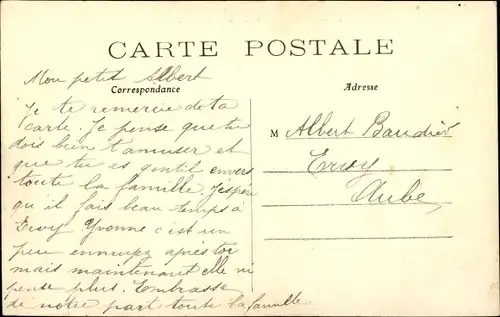 CARTE POSTALE
Mon petit Albert
Correspondance
Je te remercie de ta
carte. Je pense que tu
dois bien t'amuser et
que tu es gentil envers
toute la famille. J'espère
qu'il fais beau temps à
Ervy Yvonne c'est un
peu ennuyez après toi
mais maintenant elle ni
pense plus. Embrasse
de notre part toute la famille
Adresse
M Albert Baudier
Ervy
Aube